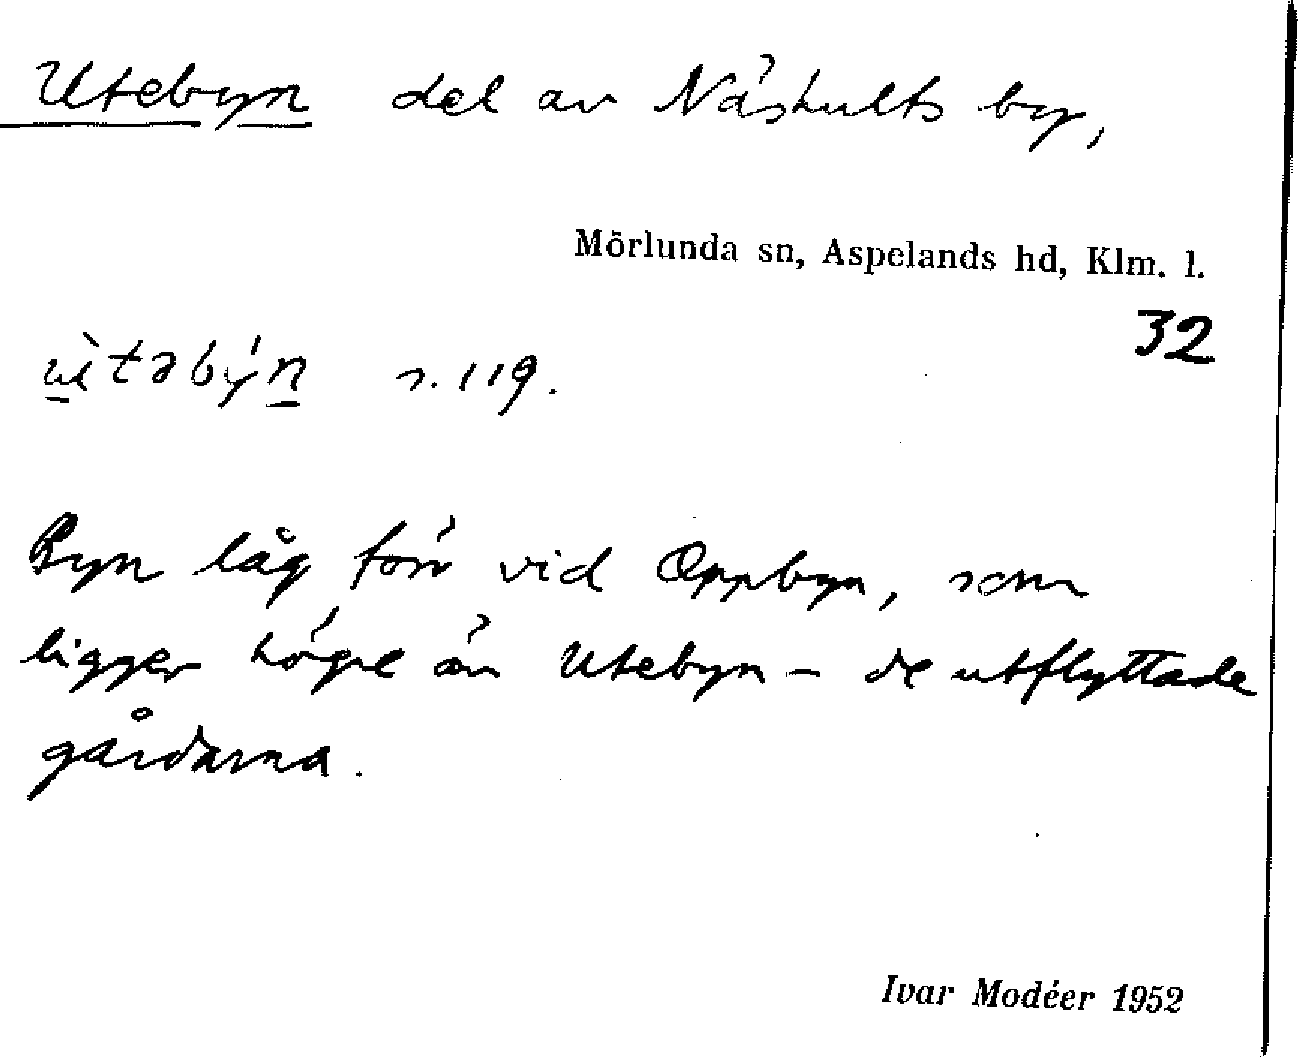 Utebyn del av Näshults by,
Mörlunda sn, Aspelands hd, Klm. l.
32
ùtəbýn s. 119.
Byn låg förr vid Oppbyn, som
ligger högre än Utebyn – de utflyttade
gårdarna.
Ivar Modéer 1952